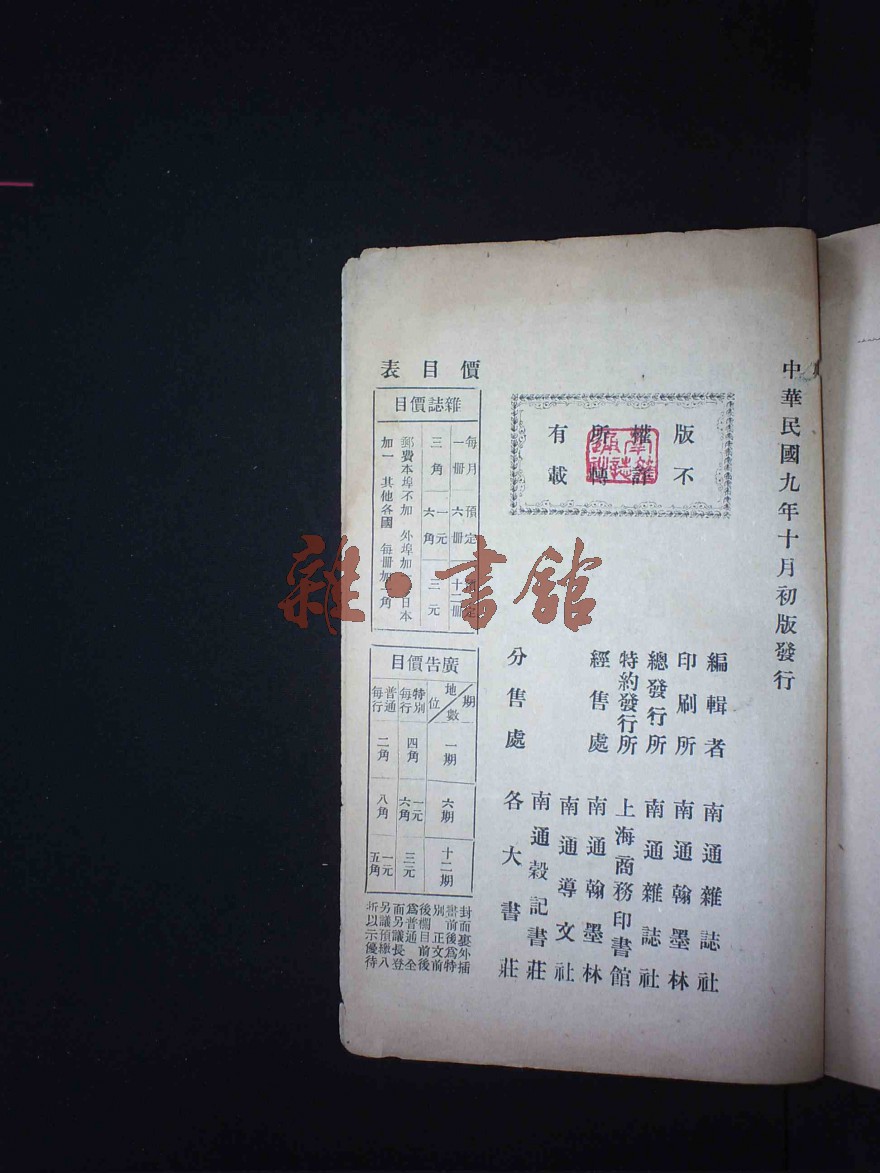 中華民國九年十月初版發行
版權所有
不許轉載
編輯者 南通雜誌社
印刷所 南通翰墨林
總發行所 南通雜誌社
特約發行所 上海商務印書館
經售處 南通翰墨林
南通導文社
南通穀記書莊
分售處 各大書莊
價目表
雜誌價目
每月一冊 三角
預定六冊 一元六角
預定十二冊 三元
郵費本埠不加 外埠加 日本
加一 其他各國 每冊加 角
廣告價目
期數 地位 一期 六期 十二期
特別每行 四角 一元六角 三元
普通每行 二角 八角 一元五角
封面裏外插
書前後為特
別正文前
後欄目前後
為普通 全
面另議長登
另議預繳八
折以示優待
雜·書館